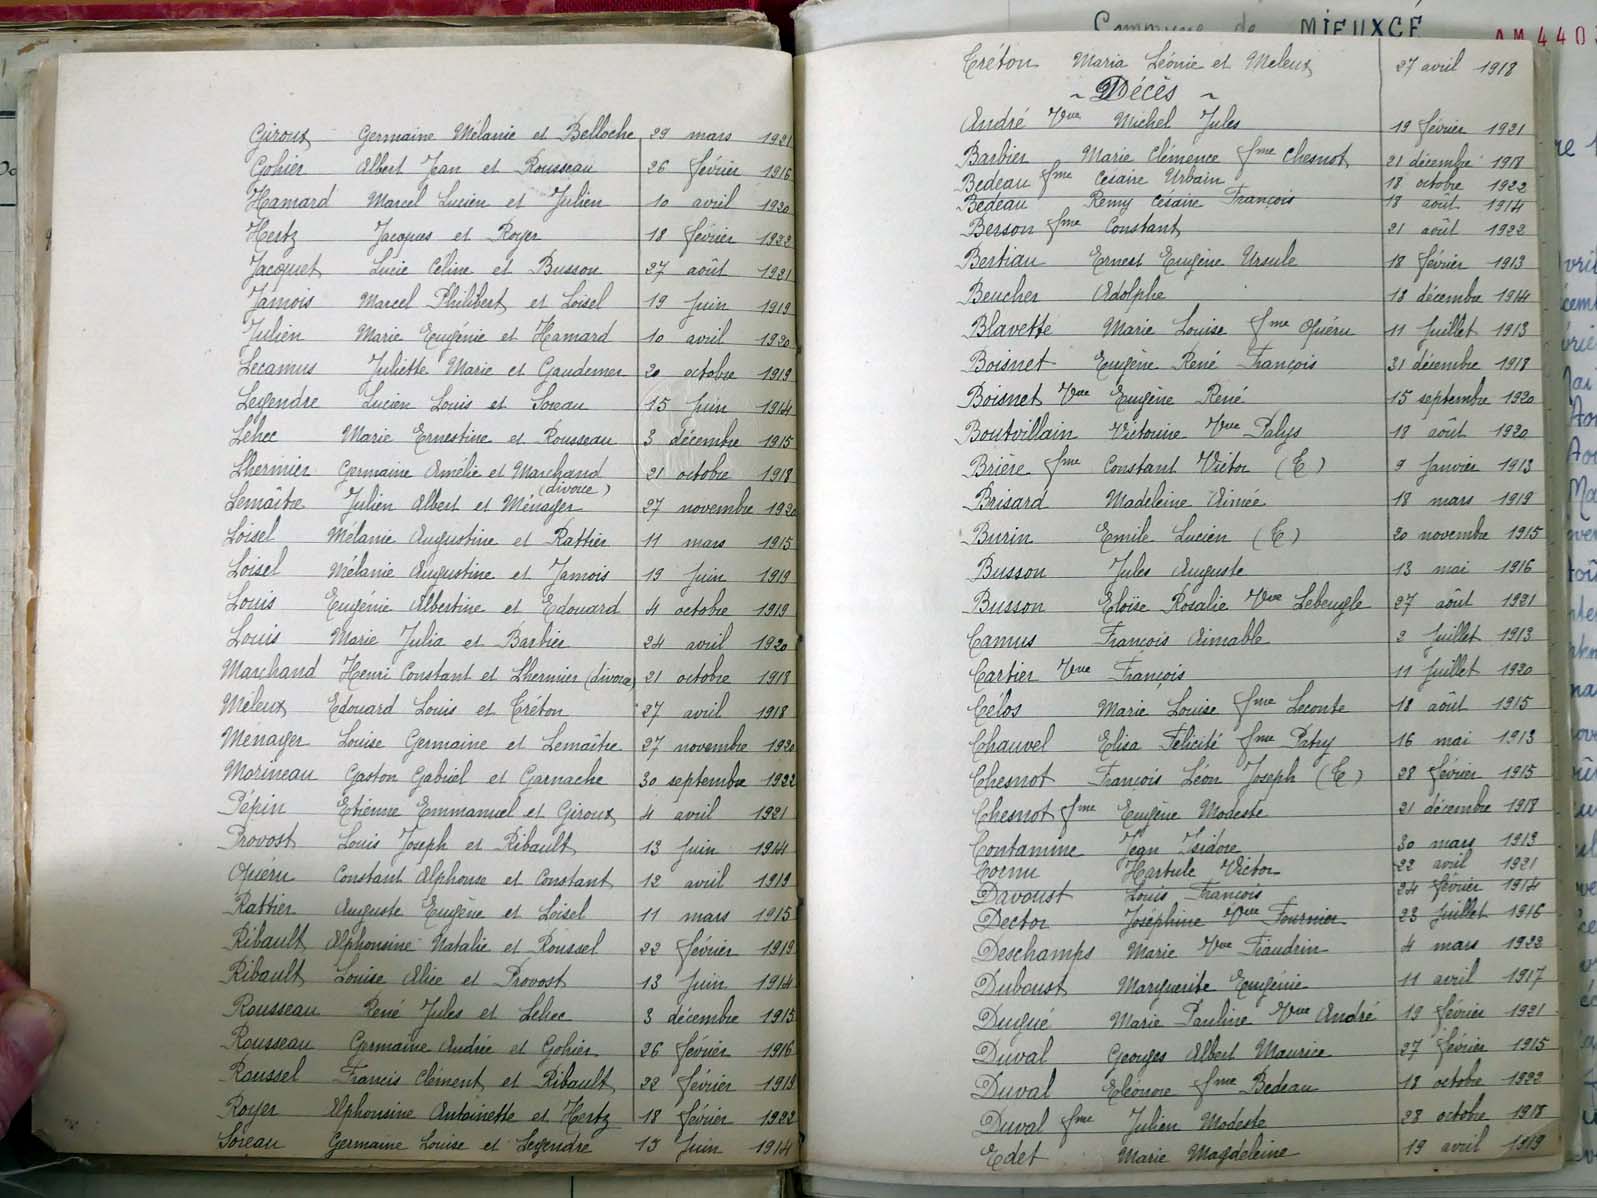 Giroux Germaine Mélanie et Belloche 29 mars 1921
Gohier Albert Jean et Rousseau 26 février 1916
Hamard Marcel Lucien et Julien 10 avril 1920
Hertz Jacques et Royer 18 février 1922
Jacquet Lucie Céline et Busson 27 août 1921
Jamois Marcel Philibert et Loisel 19 Juin 1919
Julien Marie Eugénie et Hamard 10 avril 1920
Lecamus Juliette Marie et Gaudemer 20 octobre 1919
Legendre Lucien Louis et Soreau 15 Juin 1914
Léhec Marie Ernestine et Rousseau 3 décembre 1915
Lhermier Germaine Amélie et Marchand (divorce) 21 octobre 1918
Lemaître Julien Albert et Ménager 27 novembre 1920
Loisel Mélanie Augustine et Rattier 11 mars 1915
Loisel Mélanie Augustine et Jamois 19 Juin 1919
Louis Eugénie Albertine et Edouard 4 octobre 1919
Louis Marie Julia et Barbier 24 avril 1920
Marchand Henri Constant et Lhermier (divorce) 21 octobre 1918
Méleux Edouard Louis et Créton 27 avril 1918
Ménager Louise Germaine et Lemaître 27 novembre 1920
Morineau Gaston Gabriel et Garnache 30 septembre 1922
Pépin Etienne Emmanuel et Giroux 4 avril 1921
Provost Louis Joseph et Ribault 13 Juin 1914
Quéru Constant Alphonse et Constant 12 avril 1919
Rattier Auguste Eugène et Loisel 11 mars 1915
Ribault Alphonsine Natalie et Roussel 22 février 1919
Ribault Louise Alice et Provost 13 Juin 1914
Rousseau René Jules et Léhec 3 décembre 1915
Rousseau Germaine Andrée et Gohier 26 février 1916
Roussel Francis Clément et Ribault 22 février 1919
Royer Alphonsine Antoinette et Hertz 18 février 1922
Soreau Germaine Louise et Legendre 15 Juin 1914
Commune de MIEUXCE
AM 440
Créton Maria Léonie et Meleux 27 avril 1918
~ Décès ~
André Vve Michel Jules 19 février 1921
Barbier Marie Clémence fme Chesnot 21 décembre 1918
Bedeau fme Césaire Urbain 18 octobre 1922
Bedeau Rémy Césaire François 18 août 1914
Berson fme Constant 21 août 1922
Bertiau Ernest Eugène Ursule 18 février 1913
Beucher Adolphe 18 décembre 1914
Blavette Marie Louise fme Quéru 11 Juillet 1913
Boisnet Eugène René François 31 décembre 1918
Boisnet Vve Eugène René 15 septembre 1920
Boutvillain Victorine Vve Palys 18 août 1920
Brière fme Constant Victor (E) 9 Janvier 1913
Brisard Madeleine Aimée 18 mars 1919
Burin Emile Lucien (E) 20 novembre 1915
Busson Jules Auguste 13 mai 1916
Busson Eloïse Rosalie Vve Lebeugle 27 août 1921
Camus François Aimable 2 Juillet 1913
Cartier Vve François 11 Juillet 1920
Célos Marie Louise fme Leconte 18 août 1915
Chauvel Elisa Félicité fme Patry 16 mai 1913
Chesnot François Léon Joseph (E) 28 février 1915
Chesnot fme Eugène Modeste 21 décembre 1918
Contamine Jean Isidore 30 mars 1913
Cornu Victor 22 avril 1921
Davoust Louis François 24 février 1914
Dector Joséphine Vve Fournier 23 Juillet 1916
Deschamps Marie Vve Fiaudrin 4 mars 1922
Duboust Marguerite Eugénie 11 avril 1917
Dugué Marie Pauline Vve André 19 février 1921
Duval Georges Albert Maurice 27 février 1915
Duval Eléonore fme Bedeau 18 octobre 1922
Duval fme Julien Modeste 28 octobre 1918
Edet Marie Magdeleine 19 avril 1919